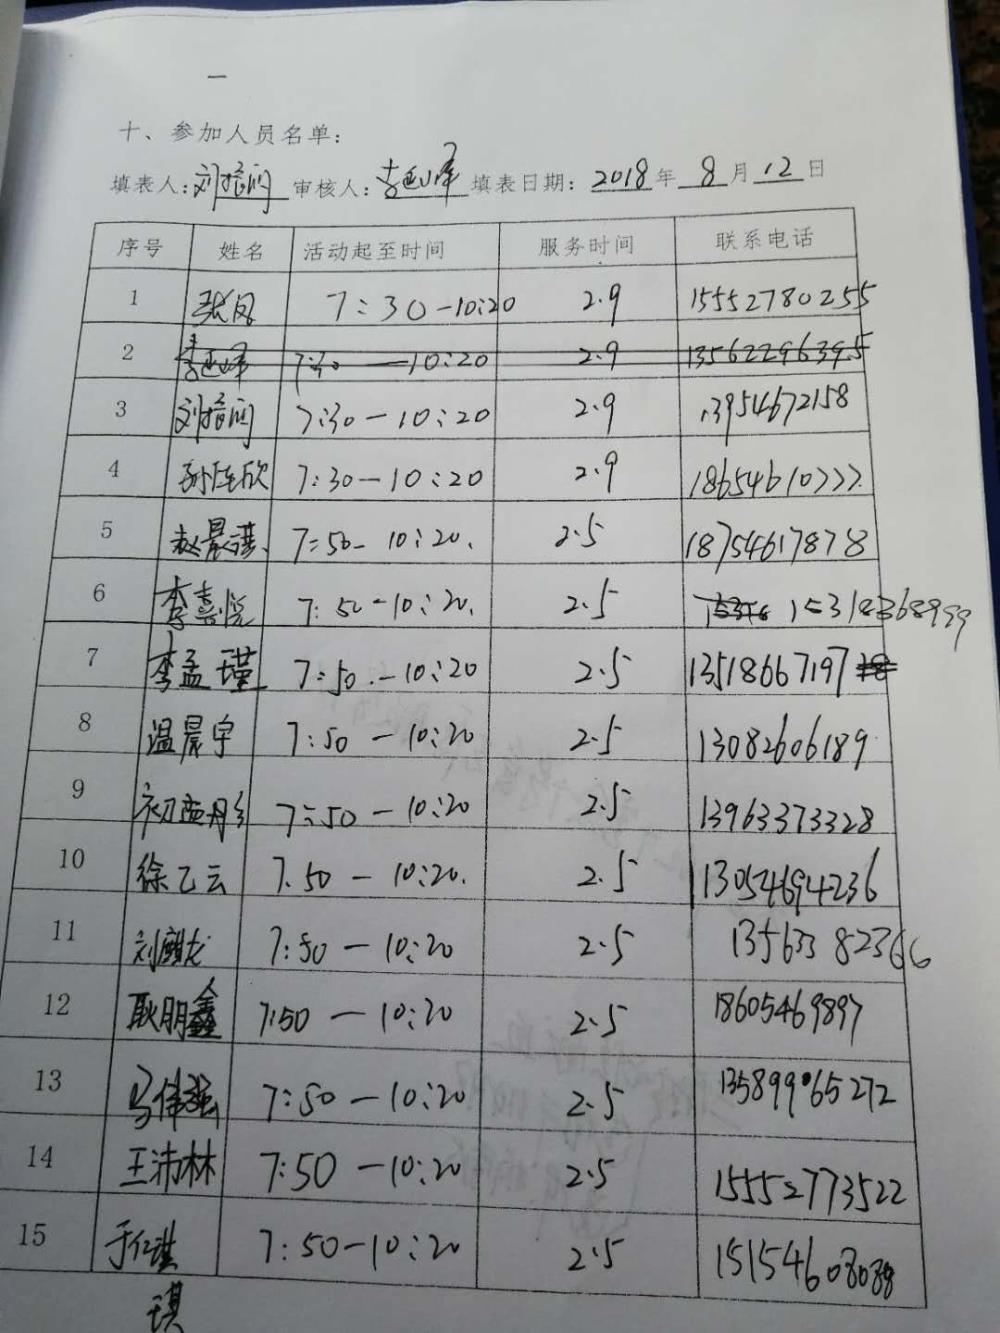 一
十、参加人员名单：
填表人：刘振润 审核人：李延峰 填表日期：2018年 8月12日
序号 姓名 活动起至时间 服务时间 联系电话
1 张凤 7:30-10:20 2.9 15552780255
2 李延峰 7:30—10:20 2.9 13562296395
3 刘振润 7:30—10:20 2.9 13954672158
4 7:30—10:20 2.9 18654610777
5 赵晨淇 7:50-10:20. 2.5 18754617878
6 李嘉悦 7:50-10:20. 2.5 15318368999
7 李孟瑾 7:50.-10:20 2.5 13518667197
8 温晨宇 7:50-10:20 2.5 13082606189
9 初孟彤 7:50-10:20 2.5 13963373328
10 徐乙云 7.50-10:20. 2.5 13054694236
11 刘麒龙 7:50—10:20 2.5 13563382366
12 耿明鑫 7:50—10:20 2.5 18605469897
13 马伟强 7:50—10:20 2.5 13589965272
14 王沛林 7:50—10:20 2.5 15552773522
15 于仁淇 7:50-10:20 2.5 15154608088
琪